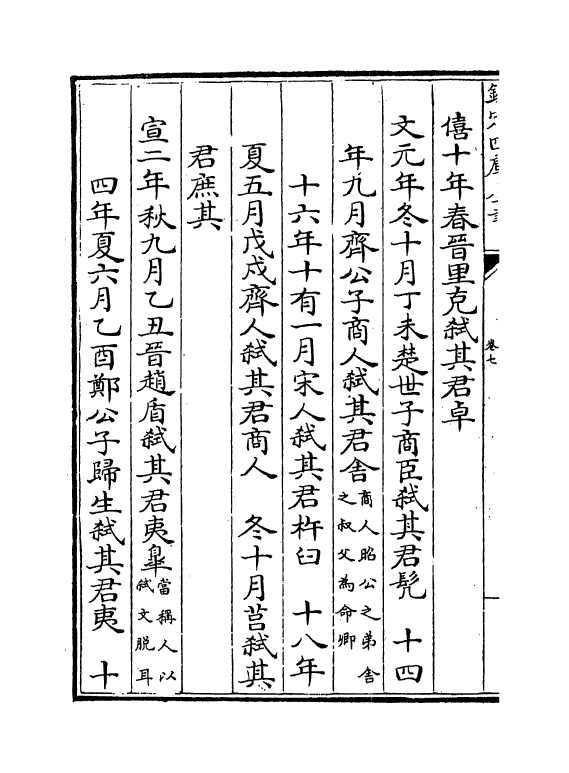 欽定四庫全書
卷七
僖十年春晉里克弑其君卓
文元年冬十月丁未楚世子商臣弑其君髠　十四
年九月齊公子商人弑其君舎商人昭公之弟舎之叔父為命卿
十六年十有一月宋人弑其君杵臼　十八年
夏五月戊戍齊人弑其君商人　冬十月莒弑其
君庶其
宣二年秋九月乙丑晉趙盾弑其君夷臯當稱人以弑文脱耳
四年夏六月乙酉鄭公子歸生弑其君夷　十